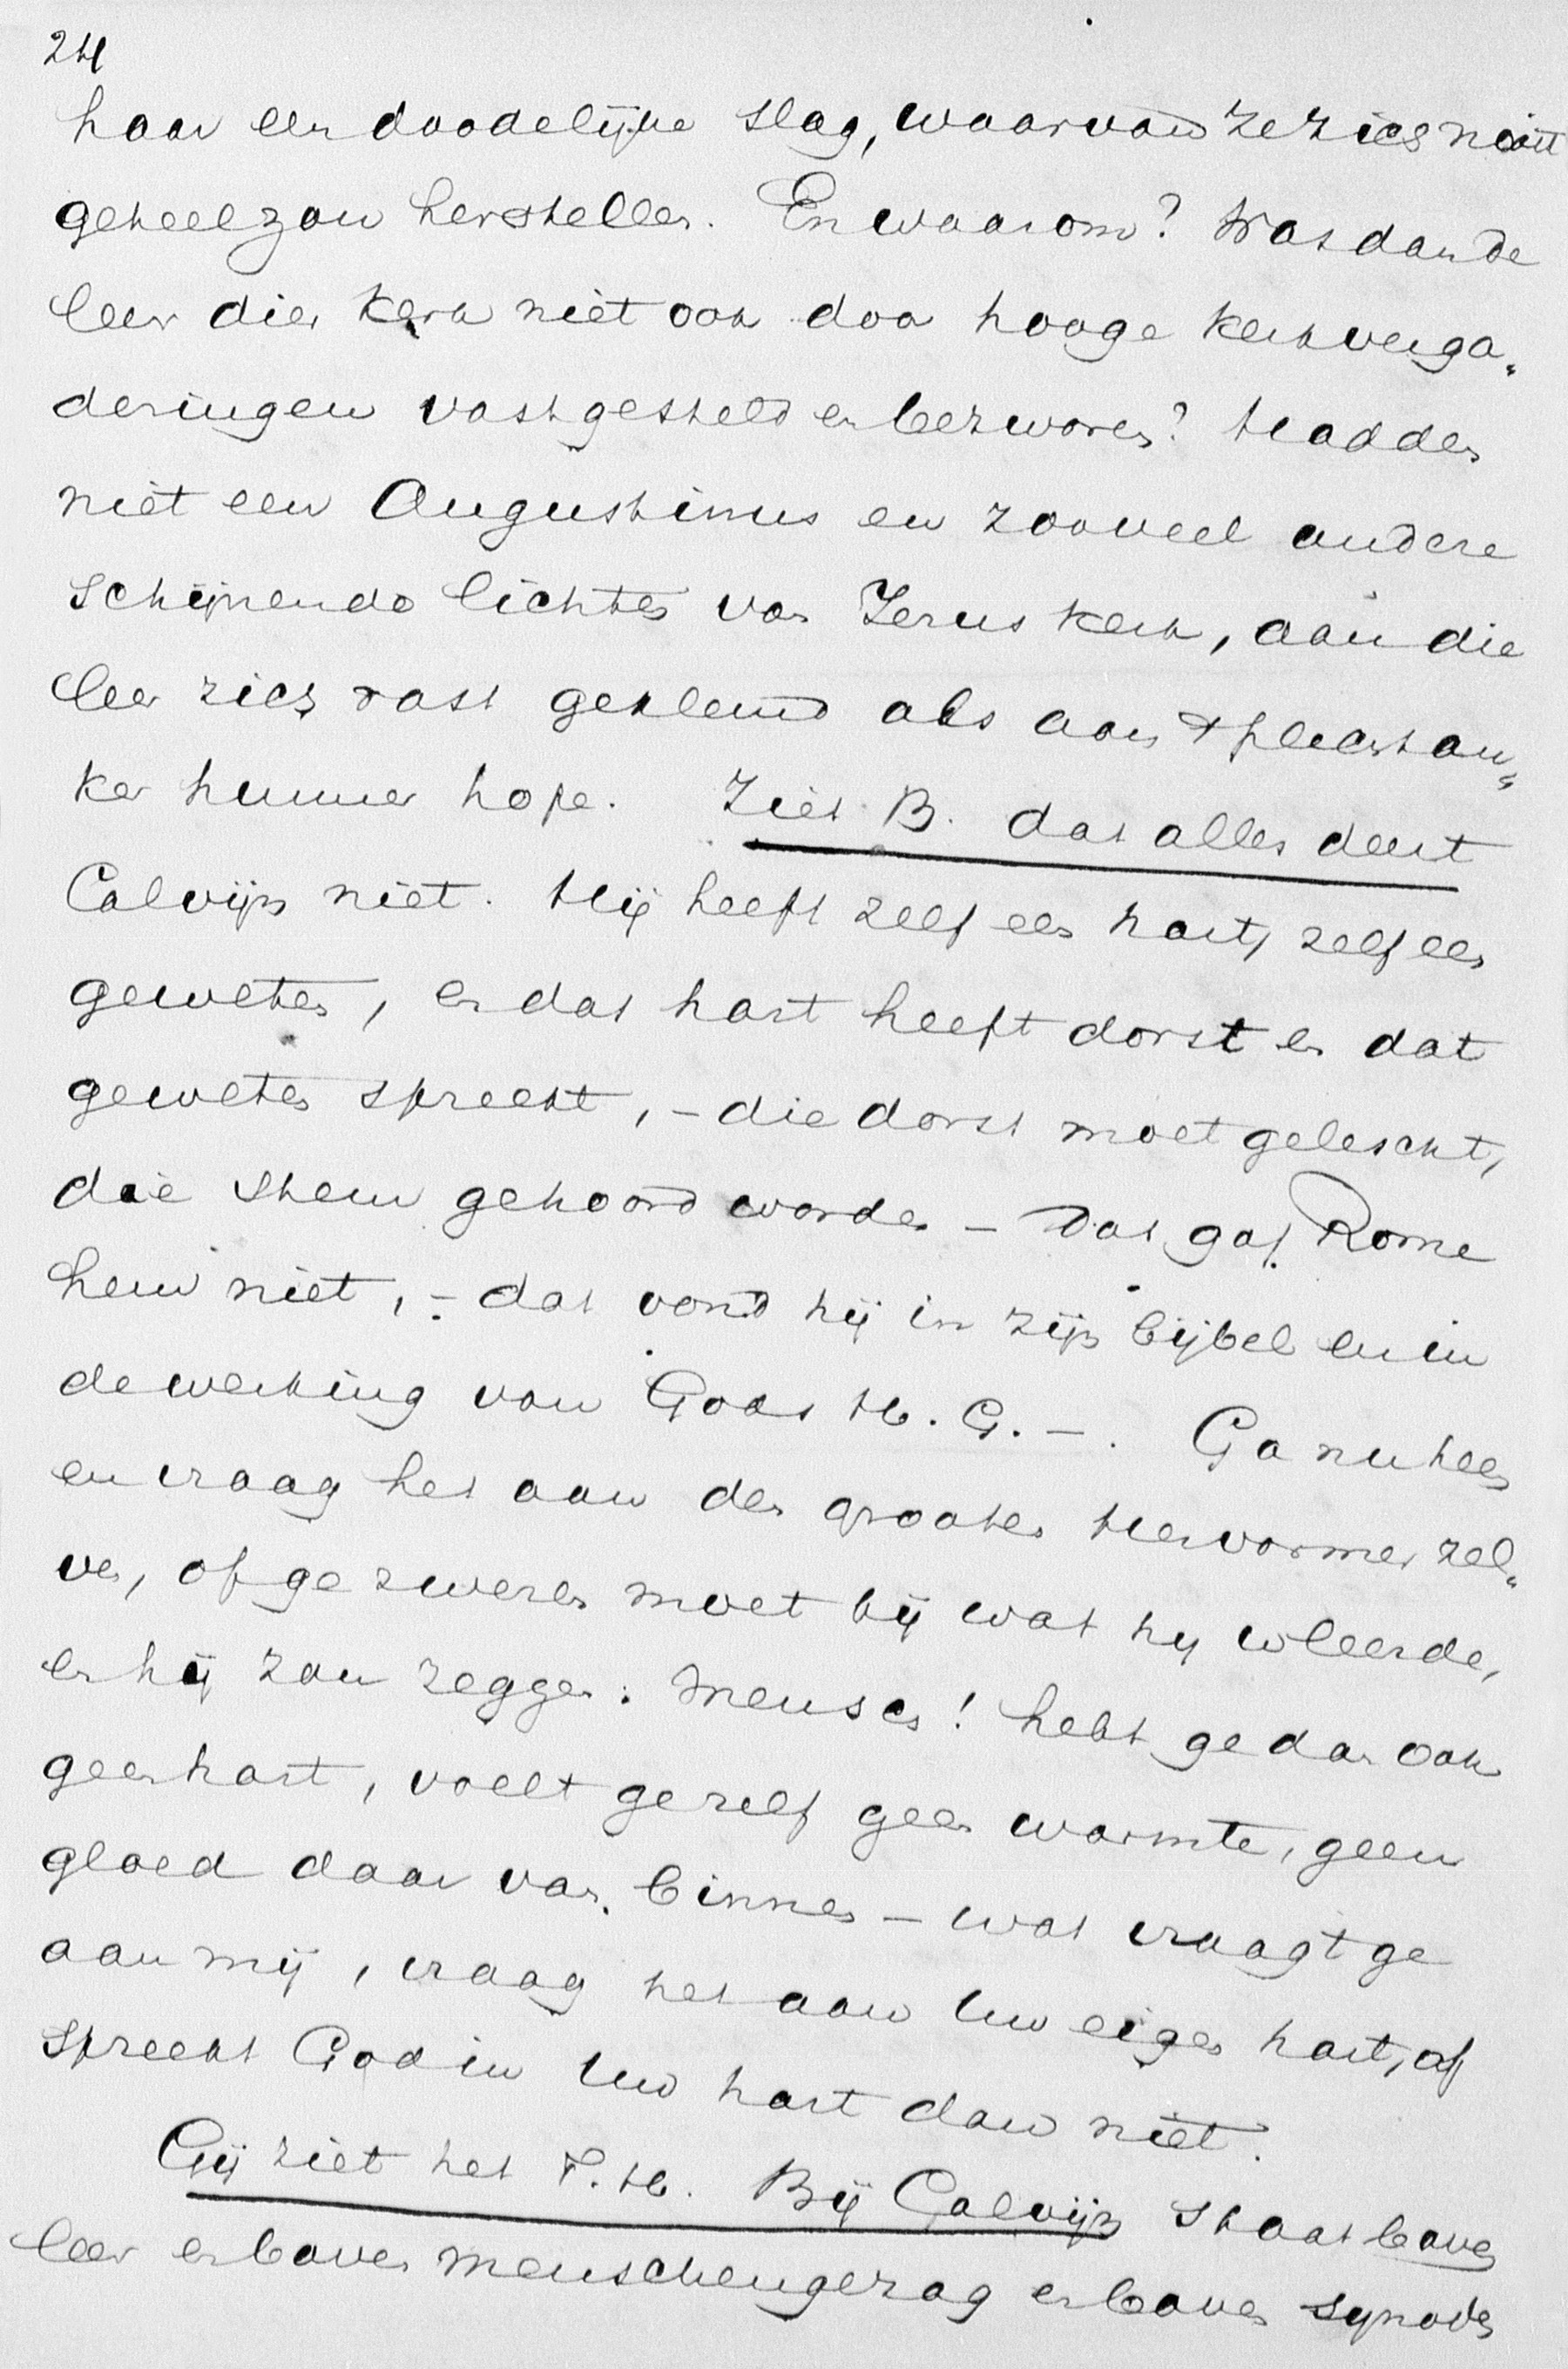 24
haar een doodelijke slag, waarvan ze zich nooit
geheel zou herstellen. En waarom? Was dan de
leer dier kerk niet ook door hooge kerkverga„
deringen vastgesteld en bezworen? Hadden
niet een Augustinus en zooveel andere
schijnende lichten van Jezus kerk, aan die
leer zich vast geklemd als aan 't plechtan„
ker hunner hope. Ziet B. dat alles deert
Calvijn niet. Hij heeft zelf een hart, zelf een
geweten, en dat hart heeft dorst en dat
geweten spreekt, – die dorst moet gelescht,
die stem gehoord worden – Dat gaf Rome
hem niet, – dat vond hij in zijn bijbel en in
de werking van Gods H. G. –. Ga nu heen
en vraag het aan den grooten Hervormer zel„
ven, of ge zweren moet bij wat hij leerde,
en hij zou zeggen: Mensch! hebt ge dan ook
geen hart, voelt ge zelf geen warmte, geen
gloed daar van binnen – wat vraagt ge
aan mij, vraag het aan Uw eigen hart, of
spreekt God in Uw hart dan niet.
Gij ziet het T. H. Bij Calvijn staat boven
leer en boven menschengezag en boven synoden